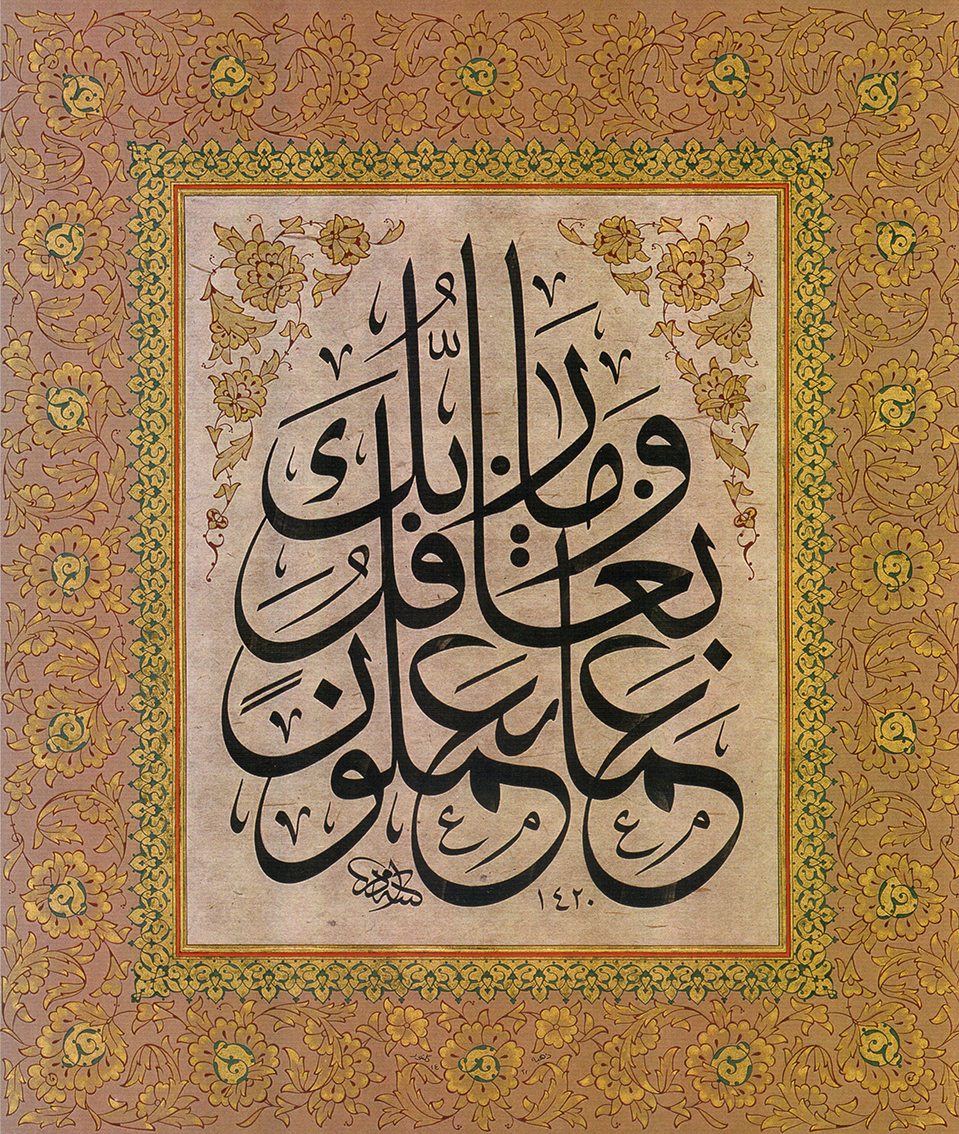 وما ربك
بغافل
عما تعملون
١٤٢٠